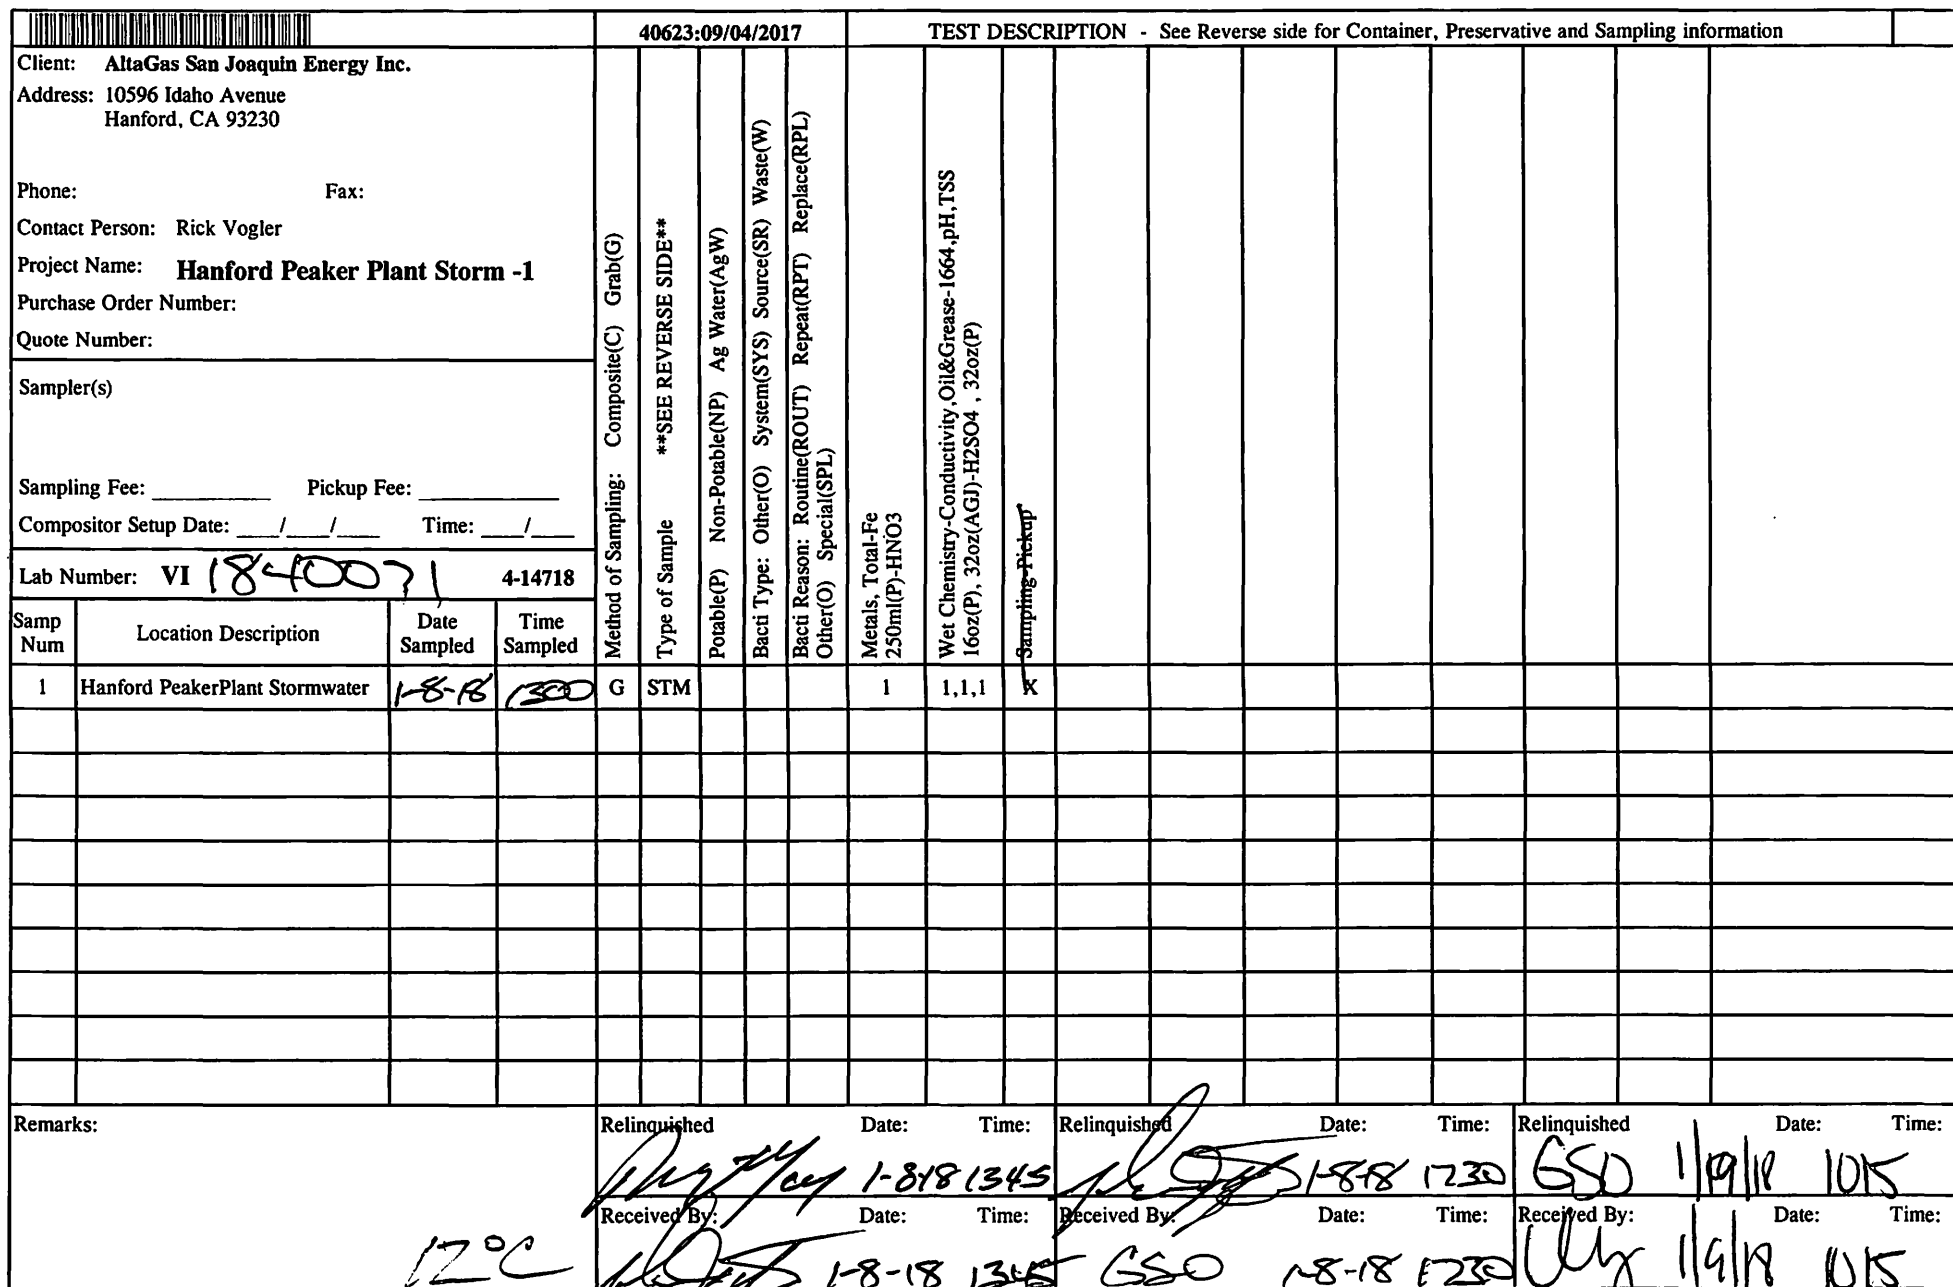 40623:09/04/2017
TEST DESCRIPTION - See Reverse side for Container, Preservative and Sampling information
Client: AltaGas San Joaquin Energy Inc.
Address: 10596 Idaho Avenue
Hanford, CA 93230
Phone: Fax:
Contact Person: Rick Vogler
Project Name: Hanford Peaker Plant Storm -1
Purchase Order Number:
Quote Number:
Sampler(s)
Sampling Fee: Pickup Fee:
Compositor Setup Date: / / Time: /
Lab Number: VI 1840071 4-14718
Samp Num
Location Description
Date Sampled
Time Sampled
Method of Sampling: Composite(C) Grab(G)
Type of Sample **SEE REVERSE SIDE**
Potable(P) Non-Potable(NP) Ag Water(AgW)
Bacti Type: Other(O) System(SYS) Source(SR) Waste(W)
Bacti Reason: Routine(ROUT) Repeat(RPT) Replace(RPL)
Other(O) Special(SPL)
Metals, Total-Fe
250ml(P)-HNO3
Wet Chemistry-Conductivity,Oil&Grease-1664,pH,TSS
16oz(P), 32oz(AGJ)-H2SO4 , 32oz(P)
Sampling-Pickup
1 Hanford PeakerPlant Stormwater 1-8-18 1300 G STM 1 1,1,1 X
Remarks:
Relinquished Date: Time: Relinquished Date: Time: Relinquished Date: Time:
1-8-18 1345 1-8-18 1730 GSO 1/9/18 1015
Received By: Date: Time: Received By: Date: Time: Received By: Date: Time:
12°C 1-8-18 1345 GSO 1-8-18 1730 1/9/18 1015